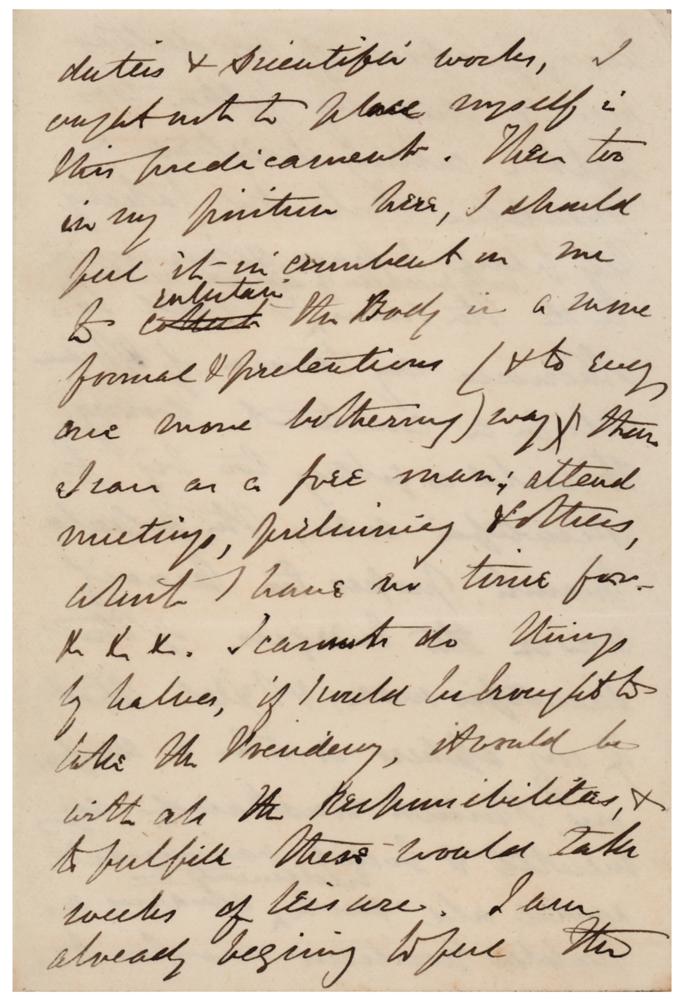 duties & scientific works, I
ought not to place myself i
this predicament. Then too
in my position here, I should
feel it incumbent on me
entertain
to collect the Body in a more
formal & pretentious (& to every
one more bothering) way) than
I can as a free man; attend
meetings, preliminary & others,
which I have no time for—
&c &c &c. I cannot do things
by halves, if I could be brought to
take the Presidency, it would be
with all the Responsibilities, &
to fulfill these would take
weeks of leisure. I am
already begining to feel the